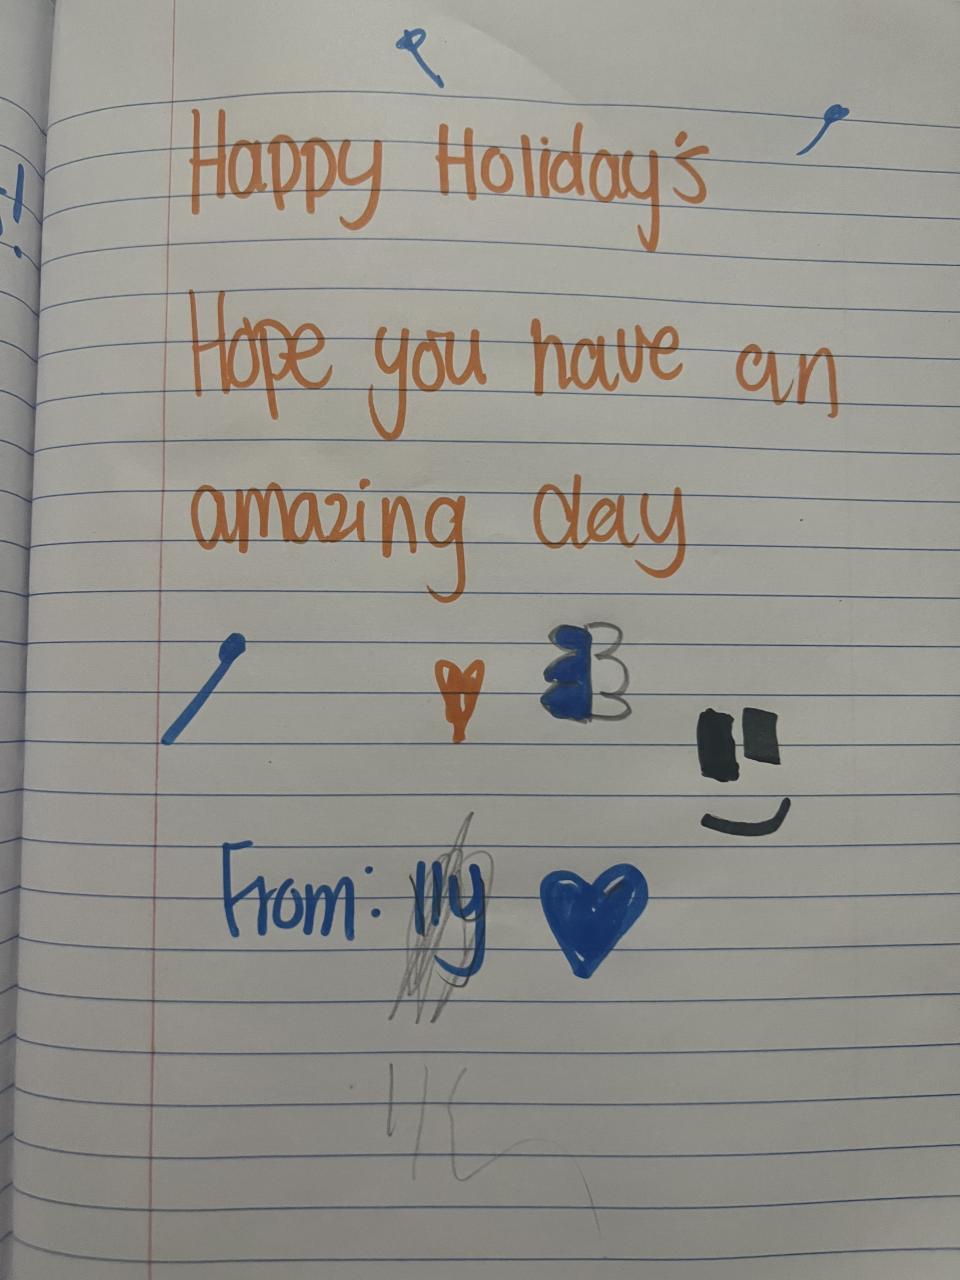 Happy Holiday's
Hope you have an
amazing day
From: lly